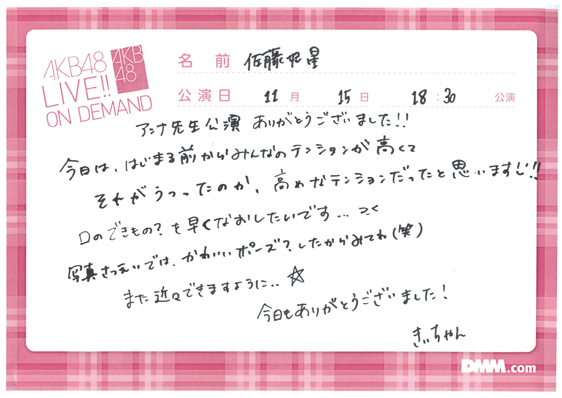 AKB48
LIVE!!
ON DEMAND
AKB
48
名 前 佐藤妃星
公演日 11月 15日 18:30 公演
アンナ先生公演 ありがとうございました!!
今日は、はじまる前からみんなのテンションが高くて
それがうつったのか、高めなテンションだったと思いますじ!!
口のできもの?を早くなおしたいです...
写真さつえいでは、かわいいポーズ?したからみてね(笑)
また近々できますように..☆
今日もありがとうございました!
きぃちゃん
DMM.com